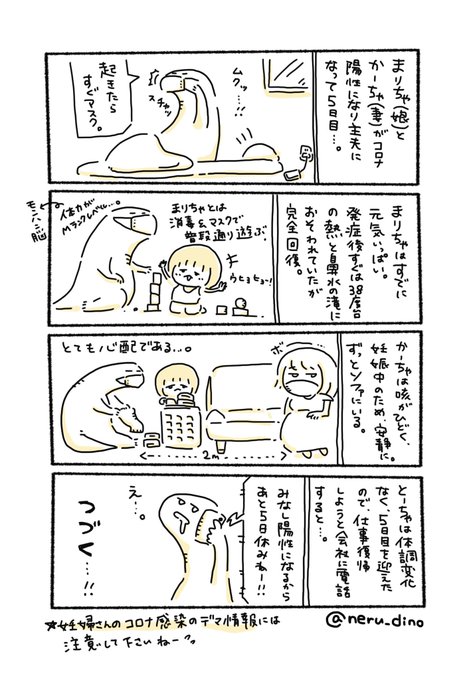 まりちゃ(娘)と
かーちゃ(妻)がコロナ
陽性になり主夫に
なって5日目…。
ムクッ…!!
スチャッ
起きたら
すぐマスク。
まりちゃはすでに
元気いっぱい。
発症後すぐは38度台
の熱と鼻水の滝に
おそわれていたが
完全回復。
まりちゃとは
消毒&マスクで
普段通り遊ぶ。
キ
ウヒョヒョー!
体力が
Mランクレベル…。
モンハン脳
かーちゃは咳がひどく、
妊娠中のため安静に。
ずっとソファにいる。
ボー
とても心配である…。
2m
とーちゃは体調変化
なく、5日目を迎えた
ので、仕事復帰
しようと会社に電話
すると…。
みなし陽性になるから
あと5日休みねー!!
え…。
つづく…!!
@neru_dino
☆妊婦さんのコロナ感染のデマ情報には
注意して下さいねー